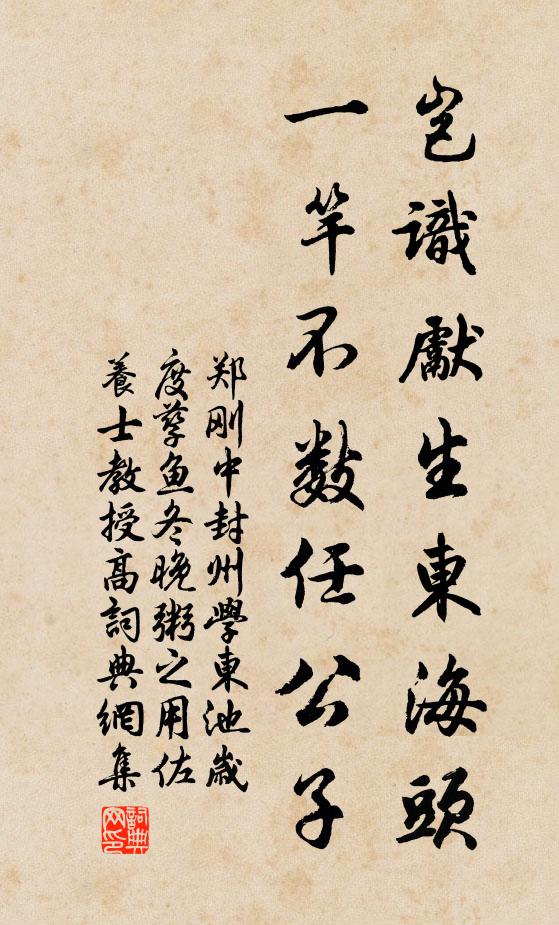 岂識獻生東海頭
一竿不數任公子
郑刚中封州學東池歲
度孳鱼冬晚粥之用佐
養士教授高詞典網集
詞典网印